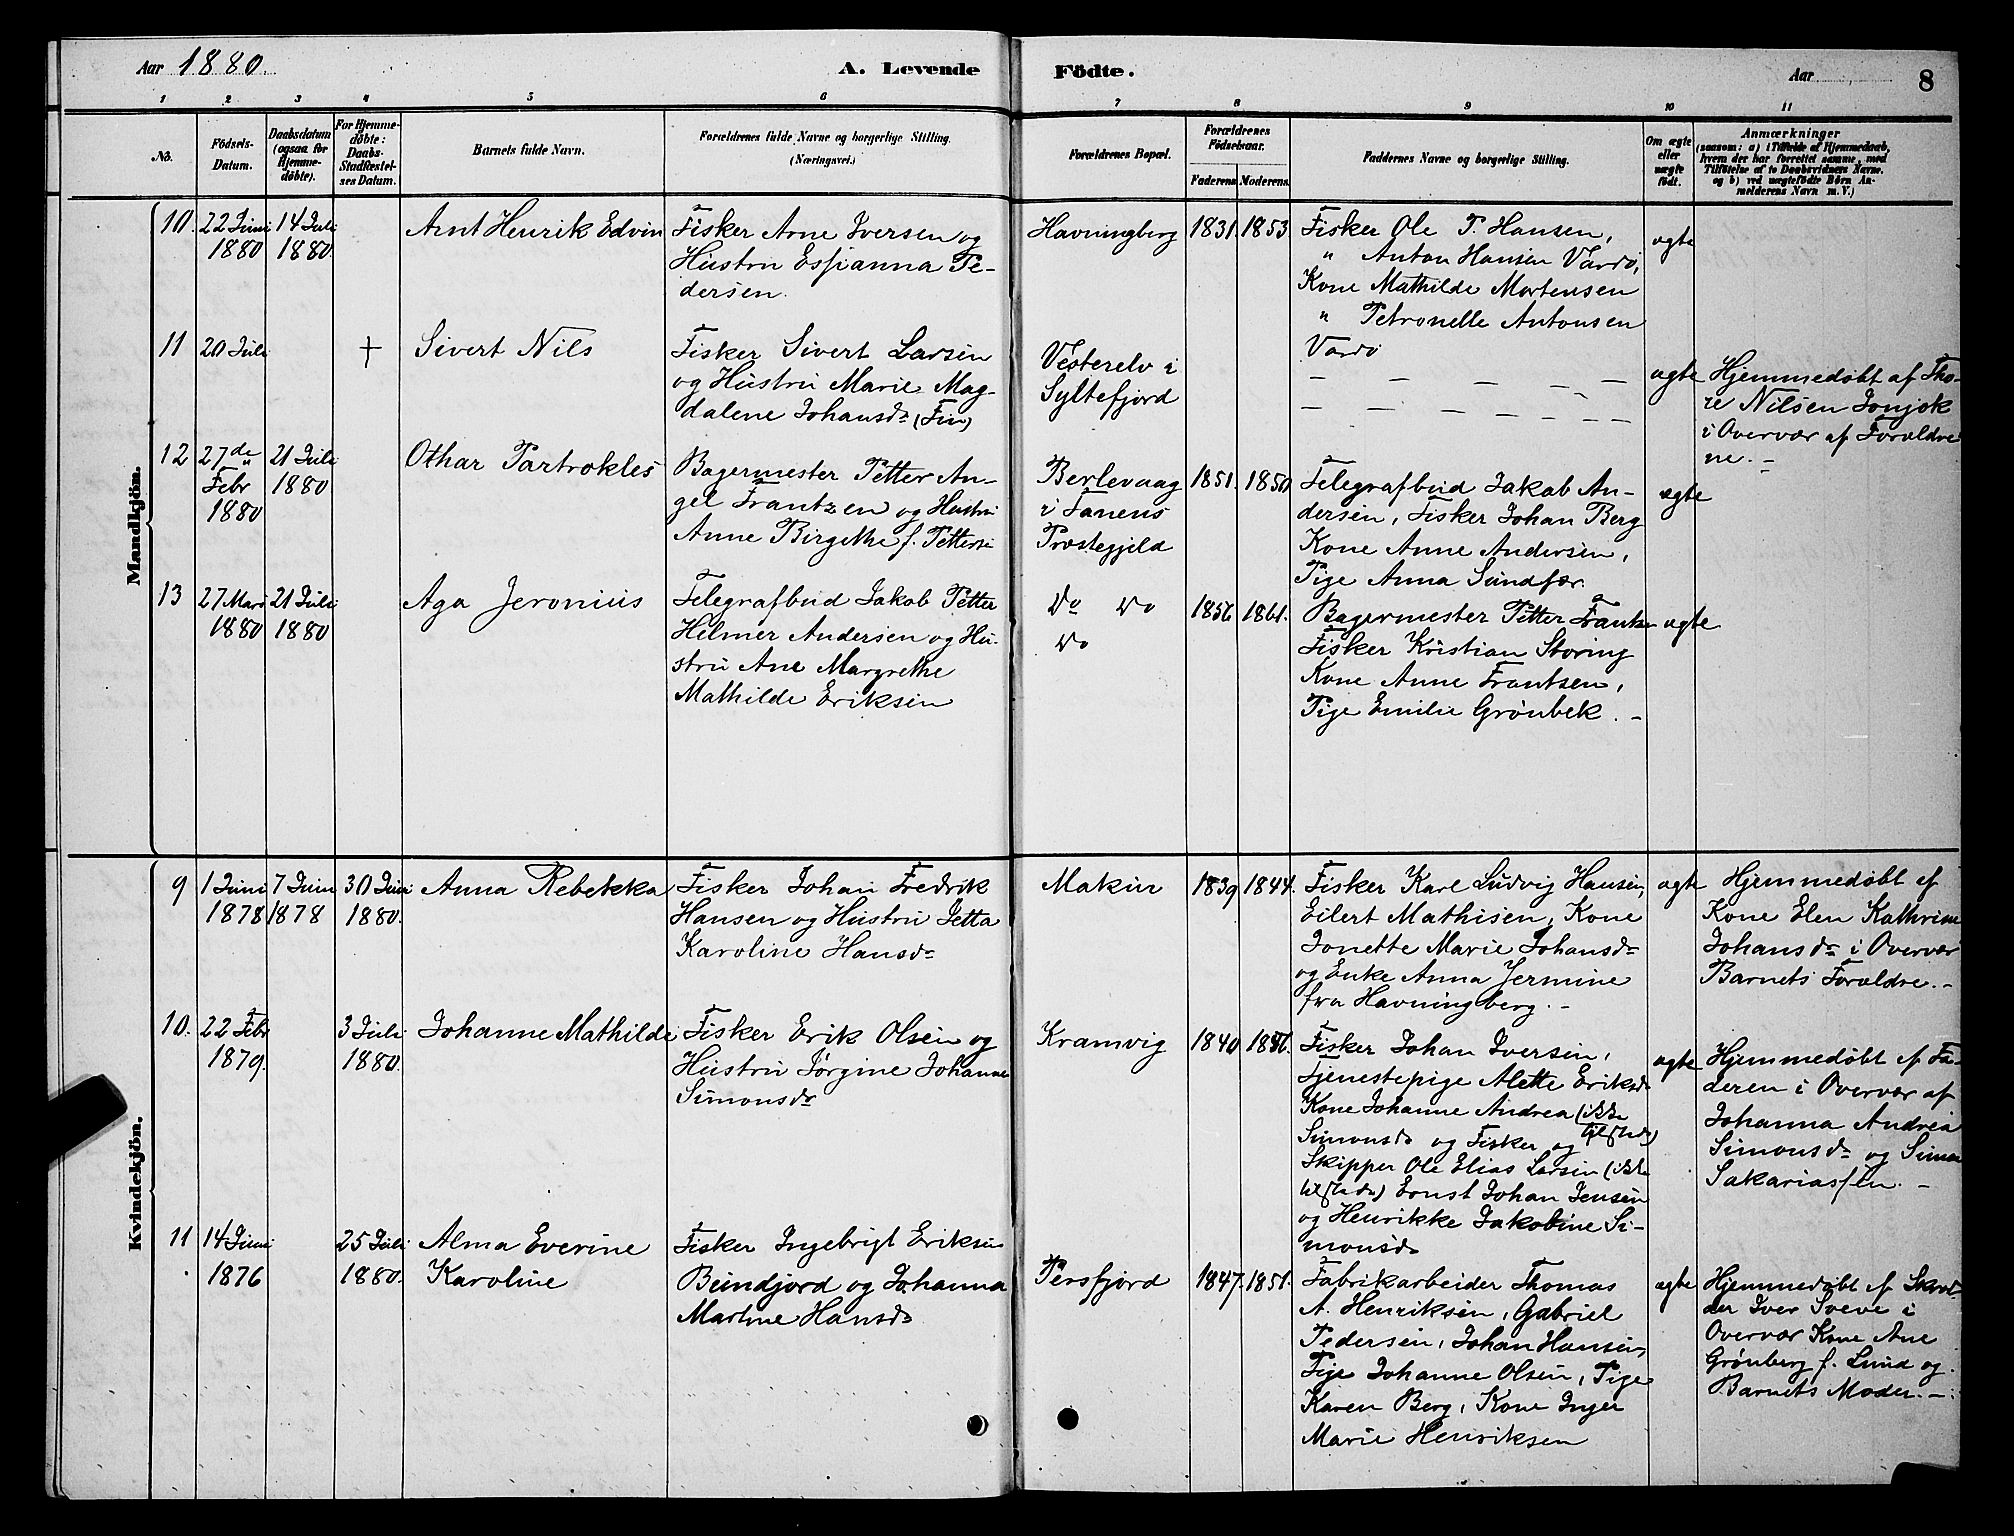 Aar 1880.
A. Levende
Födte.
Aar
8
1 2 3 4 5 6 7 8 9 10 11
No.
Födsels-
Datum.
Daabsdatum
(ogsaa for
Hjemme-
döbte).
For Hjemme-
døbte:
Daabs-
Stadfæstel-
ses Datum.
Barnets fulde Navn.
Forældrenes fulde Navne og borgerlige Stilling.
(Næringsvei.)
Forældrenes Bopæl.
Forældrenes
Födselsaar.
Faderens. Moderens.
Faddernes Navne og borgerlige Stilling.
Om ægte
eller
uægte
födt.
Anmærkninger
(saasom: a) i Tilfælde af Hjemmedaab,
hvem der har forrettet samme, med
Tilföielse af to Daabsvidners Navne.
og b) ved uægtefödte Börn An-
melderens Navn m. V.)
Mandkjön.
10. 22 Juni
1880
14 Juli
1880.
Arnt Henrik Edvin
Fisker Arne Iversen og
Hustru Essianna Pe-
dersen.
Havningberg
1831. 1853.
Fisker Ole P. Hansen,
" Anton Hansen Vardö,
Kone Mathilde Mortensen
" Petronelle Antonsen
Vardö
ægte
11 20 Juli
+
Sivert Nils
Fisker Sivert Larsen
og Hustru Marie Mag-
dalene Johansdr (Fin)
Vesterelv i
Syltefjord
— — — — —
— — — — — —
ægte
Hjemmedøbt af Tho-
re Nilsen Jonjok
i Overvær af Forældre
ne. –
12 27de
Febr
1880
21 Juli
1880
Othar Partrokles
Bagermester Petter An-
gel Frantzen og Hustru
Anne Birgethe f. Petterse
Berlevaag
i Tanens
Præstegjeld
1851. 1850
Telegrafbud Jakob An-
dersen, Fisker Johan Berg
Kone Anne Andersen,
Pige Anna Sundfær.
ægte
13 27 Mars
1880
21 Juli
1880
Aga Jeronius
Telegrafbud Jakob Petter
Helmer Andersen og Hu-
stru Ane Margrethe
Mathilde Eriksen
Do Do
Do
1856 1861.
Bagermester Petter Frantzen
Fisker Kristian Storing
Kone Anne Frantsen,
Pige Emilie Grönbek. –
ægte
Kvindekjön.
9 1 Juni
1878
7 Juni
1878
30 Juni
1880.
Anna Rebekka
Fisker Johan Fredrik
Hansen og Hustru Jetta
Karoline Hansdr
Makur
1839 1844.
Fisker Karl Ludvig Hansen,
Eilert Mathisen, Kone
Jonette Marie Johansdr
og Enke Anna Jermine
fra Havningberg. –
ægte
Hjemmedöbt af
Kone Elen Kathrine
Johansdr i Overvær
Barnets Forældre. –
10. 22 Febr
1879.
3 Juli
1880.
Johanne Mathilde
Fisker Erik Olsen og
Hustru Jørgine Johanne
Simonsdr
Kramvig
1840
Fisker Johan Iversen,
Tjenestepige Alette Eriksdr
Kone Johanne Andrea (ikke
Simonsdr og Fisker og tilstede)
Skipper Ole Elias Larsen (ikke
tilstede) Ernst Johan Jensen
og Henrikke Jakobine Si-
monsdr
ægte
Hjemmedöbt af Fa-
deren i Overvær af
Johanna Andrea
Simonsdr og Simon
Sakariassen. –
11 14 Juni
1876
25 Juli
1880.
Alma Everine
Karoline
Fisker Ingebrigt Eriksen
Beindjord og Johanna
Martine Hansdr
Persfjord
1847. 1851.
Fabrikarbeider Thomas
A. Henriksen, Gabriel
Pedersen, Johan Hansen,
Pige Johanne Olsen, Pige
Karen Berg, Kone Inger
Marie Henriksen
ægte
Hjemmedöbt af Skræd-
der Iver Sveve i
Overvær Kone Ane
Grönberg f. Lund og
Barnets Moder. –